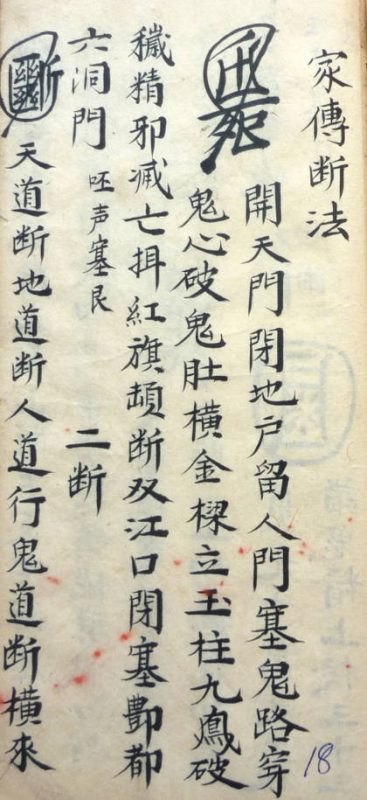 家傳断法
開天門閉地户留人門塞鬼路穿
鬼心破鬼肚橫金樑立玉柱九鳳破
穢精邪滅亡揖紅旗頡断双江口閉塞酆都
六洞門 呸声塞艮 二断
天道断地道断人道行鬼道断橫來
18